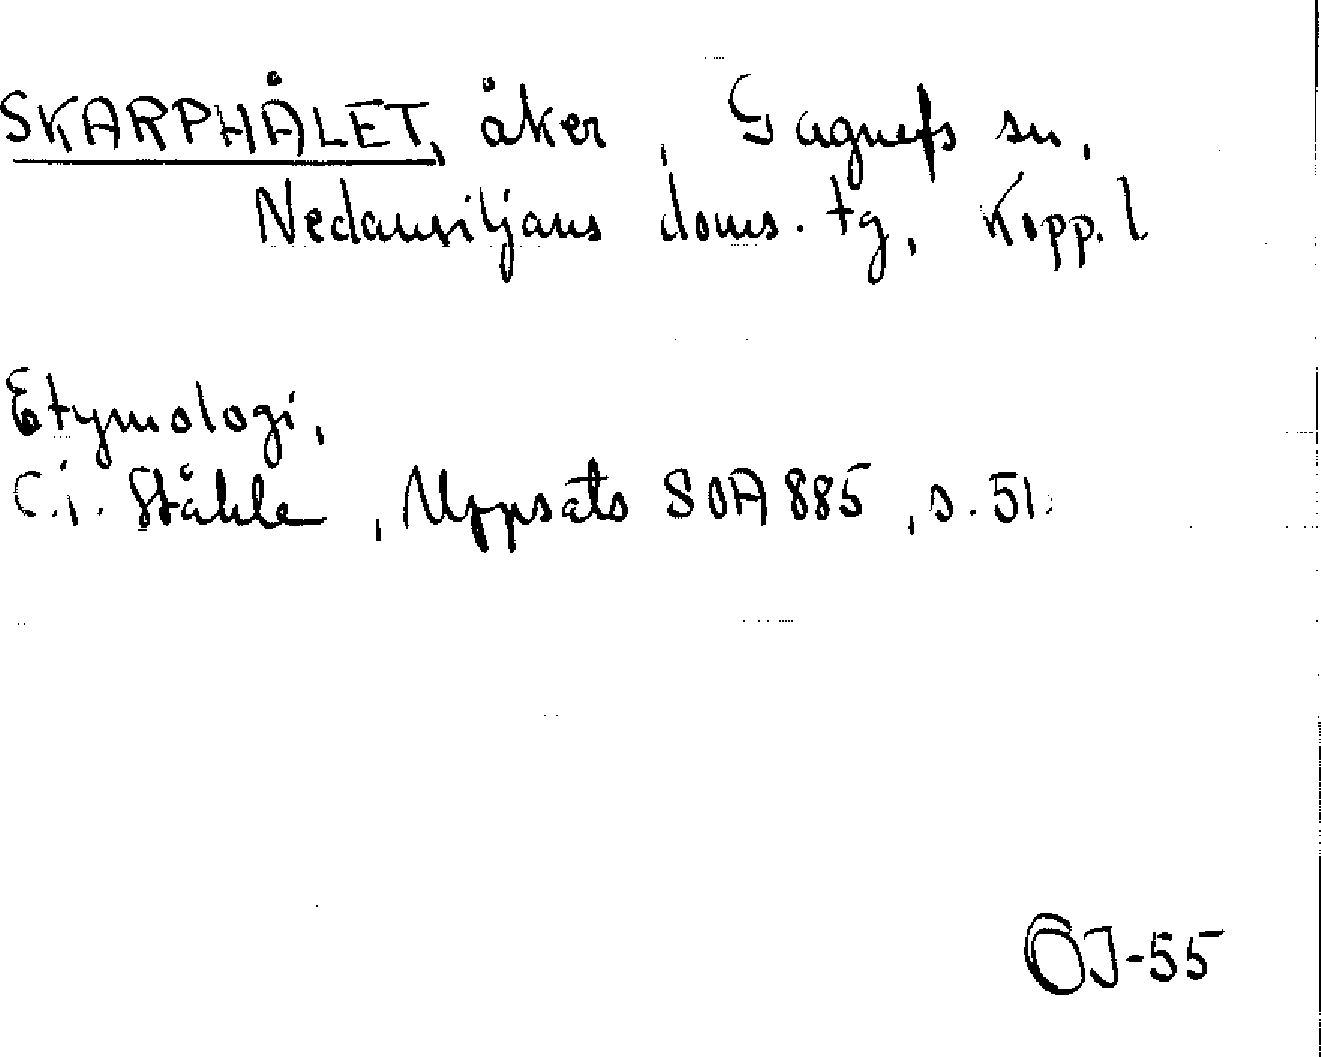 SKARPHÅLET, åker, Gagnefs sn,
Nedansiljans doms. tg, Kopp. l.
Etymologi,
C.I. Ståhle, Uppsats SOA 885, s. 51.
OJ-55